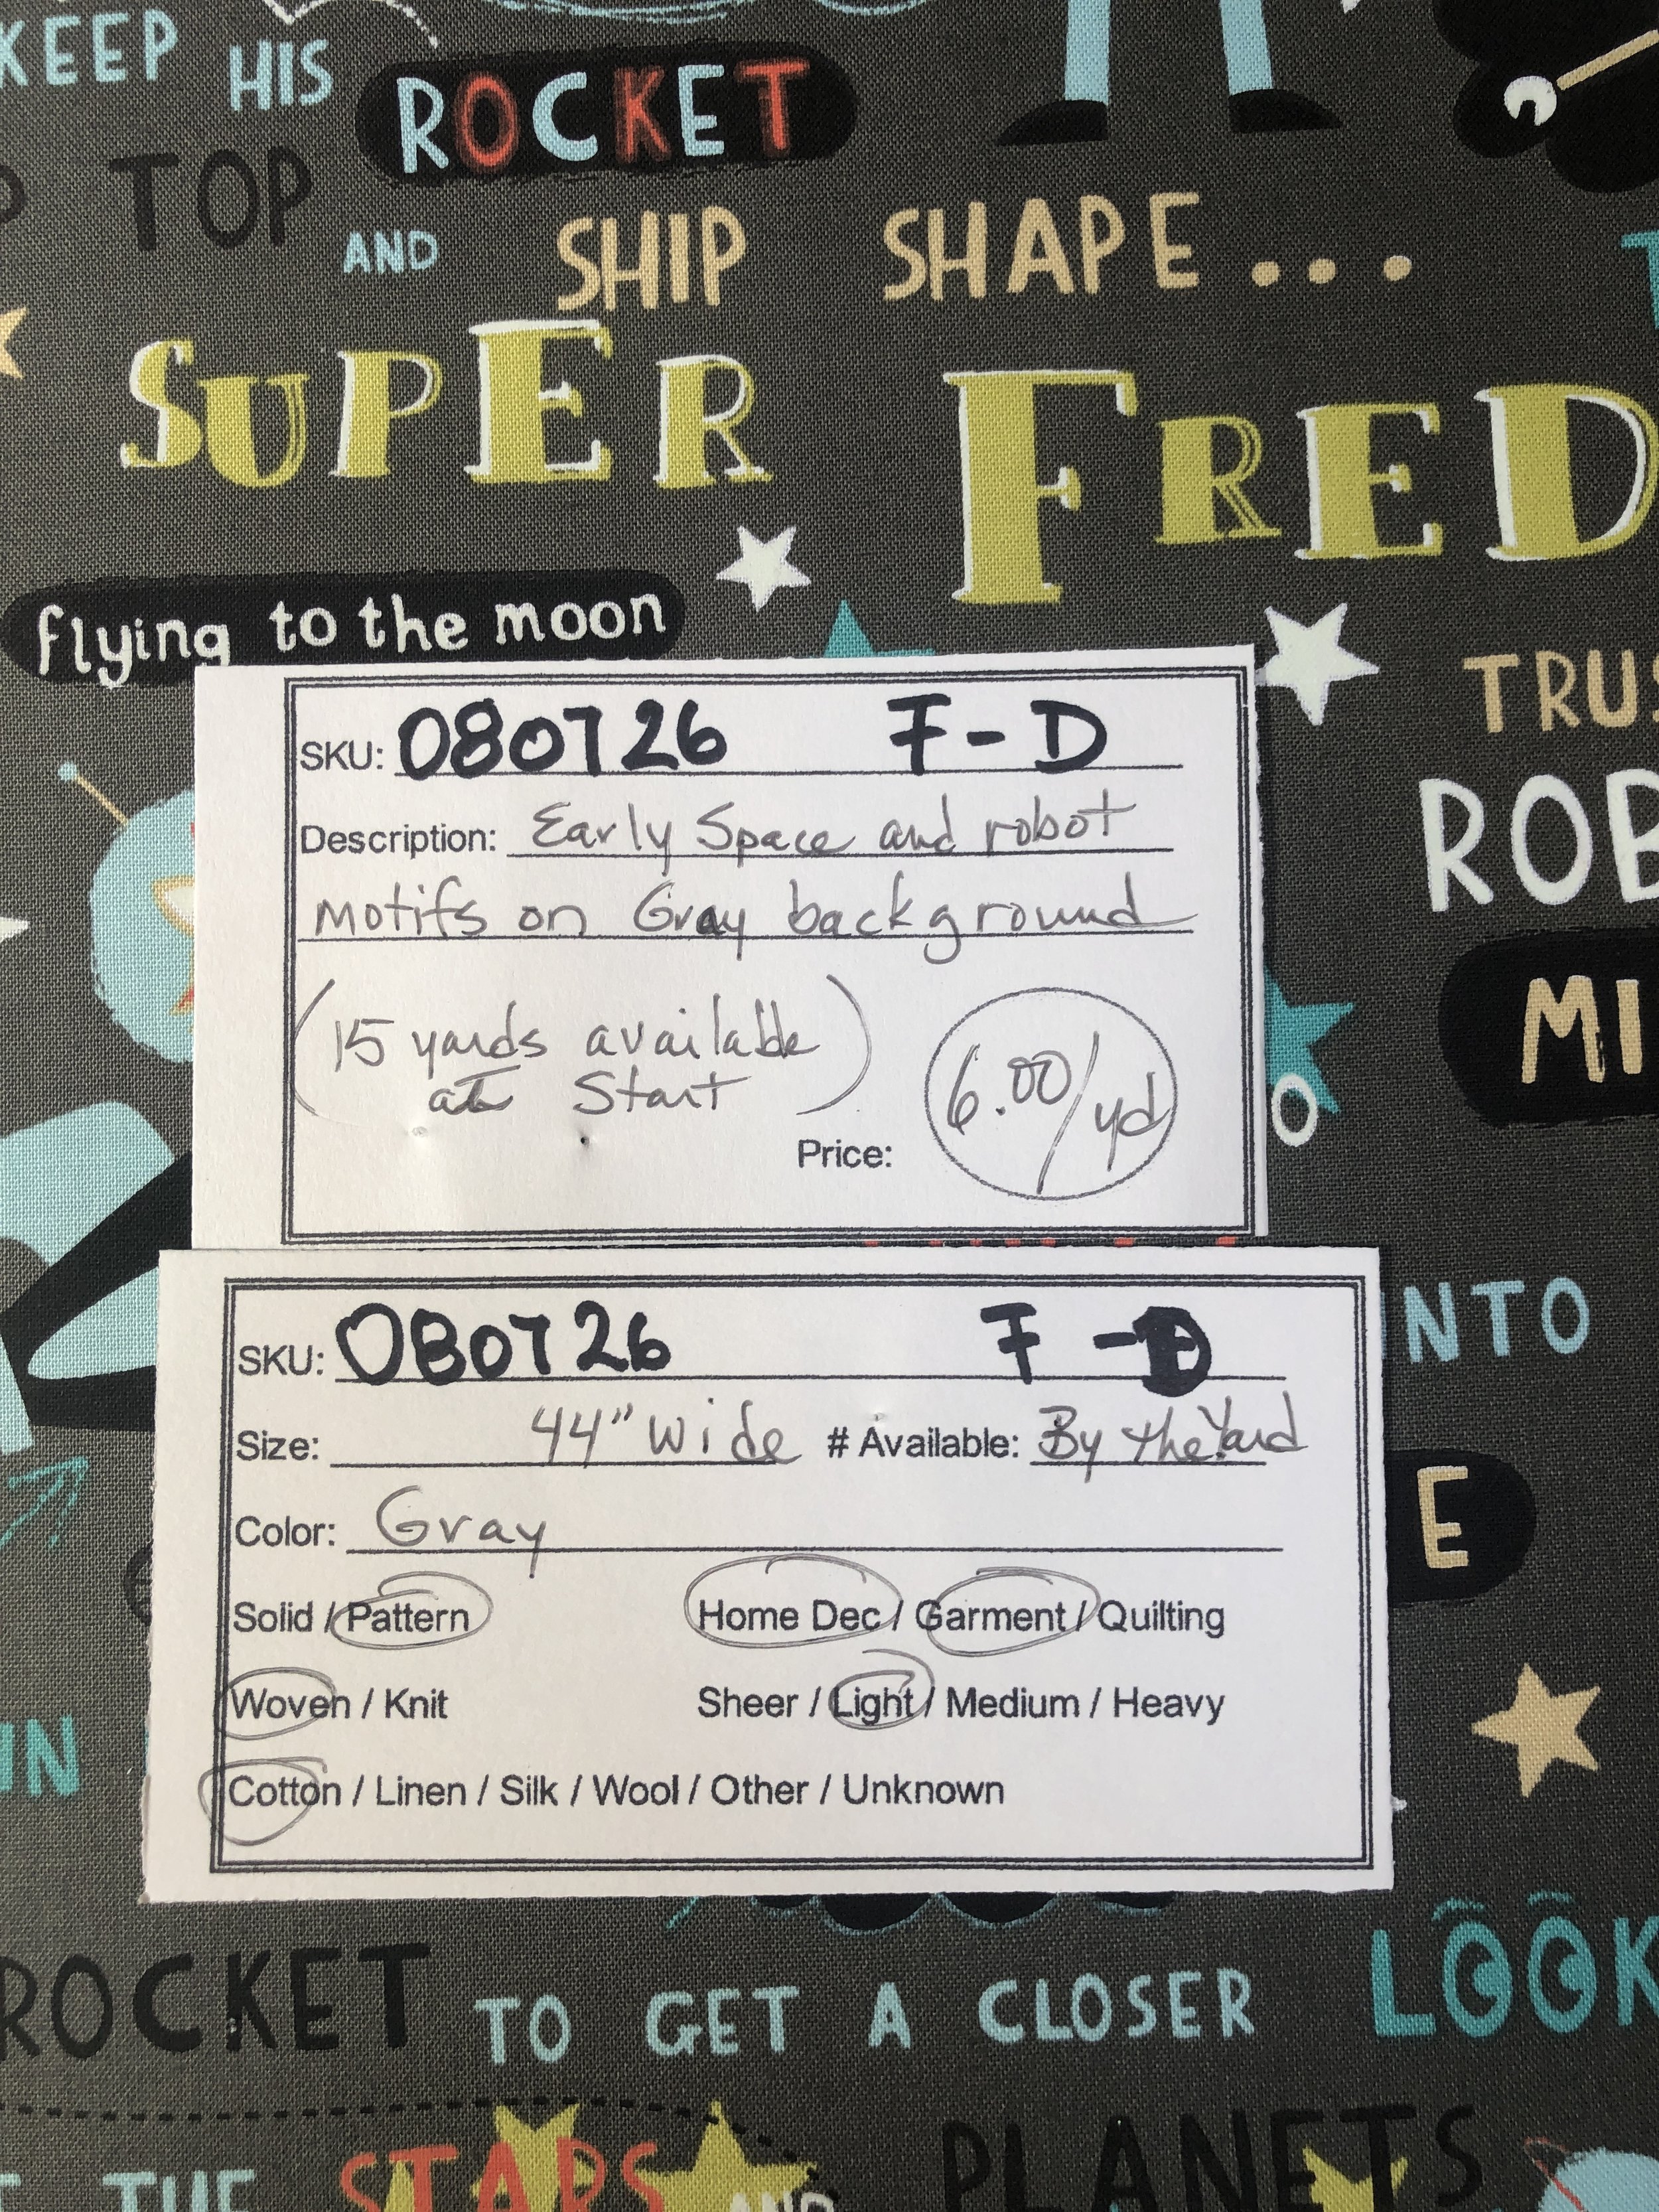 KEEP HIS ROCKET
TOP AND SHIP SHAPE...
SUPER FRED
flying to the moon
SKU: 080726 F-D
Description: Early Space and robot
motifs on Gray background
(15 yards available
at Start)
Price: 6.00/yd
ROB
MI
O
SKU: 080726 F-D
Size: 44" wide # Available: By the Yard
Color: Gray
Solid / Pattern Home Dec / Garment / Quilting
Woven / Knit Sheer / Light / Medium / Heavy
Cotton / Linen / Silk / Wool / Other / Unknown
NTO
E
IN
ROCKET TO GET A CLOSER LOOK
THE STARS AND PLANETS